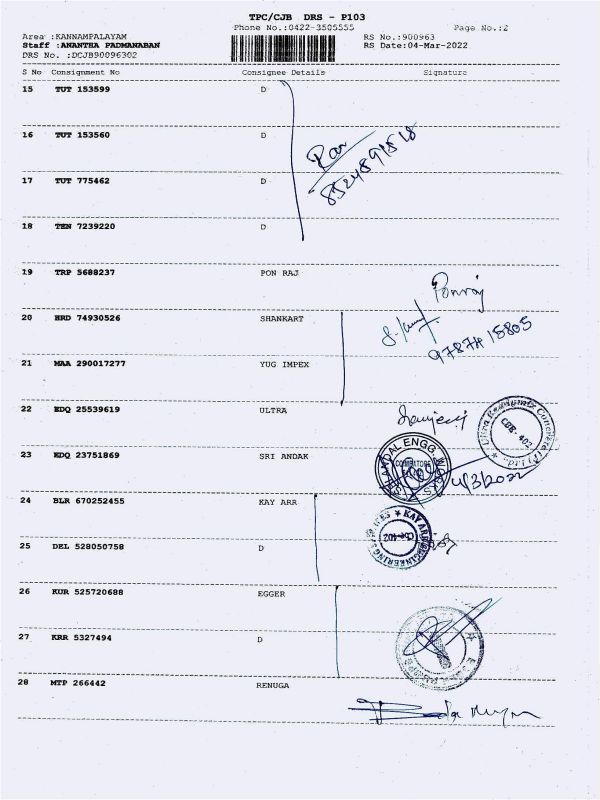 TPC/CJB DRS - P103
Phone No.:0422-3505555
Page No.:2
Area :KANNAMPALAYAM
RS No.:900963
Staff :ANANTHA PADMANABAN
RS Date:04-Mar-2022
DRS No. :DCJB90096302
S No Consignment No Consignee Details Signature
15 TUT 153599 D
16 TUT 153560 D
17 TUT 775462 D
18 TEN 7239220 D
19 TRP 5688237 PON RAJ
Ponraj
20 HRD 74930526 SHANKART
21 MAA 290017277 YUG IMPEX
22 EDQ 25539619 ULTRA
23 EDQ 23751869 SRI ANDAK
24 BLR 670252455 KAY ARR
25 DEL 528050758 D
26 KUR 525720688 EGGER
27 KRR 5327494 D
28 MTP 266442 RENUGA